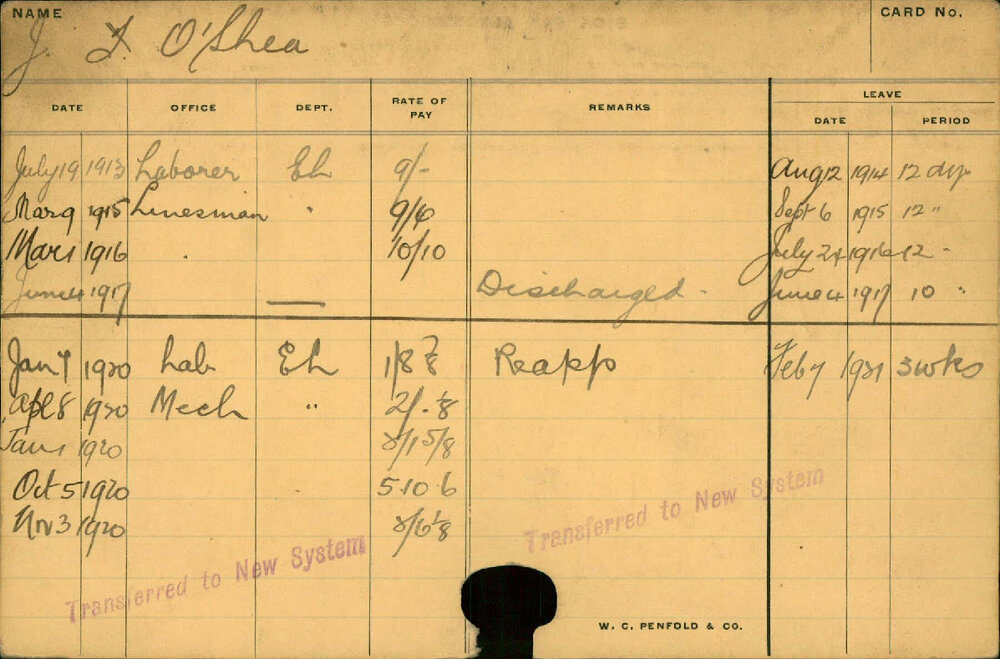 NAME J. F O'Shea CARD No.
DATE OFFICE DEPT. RATE OF PAY REMARKS LEAVE
DATE PERIOD
July 19 1913 Laborer Eh 9/- Aug 12 1914 12 dys
Mar 9 1915 Linesman " 9/6 Sept 6 1915 12 "
Mar 1 1916 . 10/10 July 24 1916 12 -
June 4 1917 — Discharged - June 4 1917 10 "
Jan 1920 Lab Eh Reapp Feb 7 1921 3 wks
Apl 8 1920 Mech "
Jan 1 1920
Oct 5 1920 5.10.6
Nov 3 1920
Transferred to New System
Transferred to New System
W. C. PENFOLD & CO.